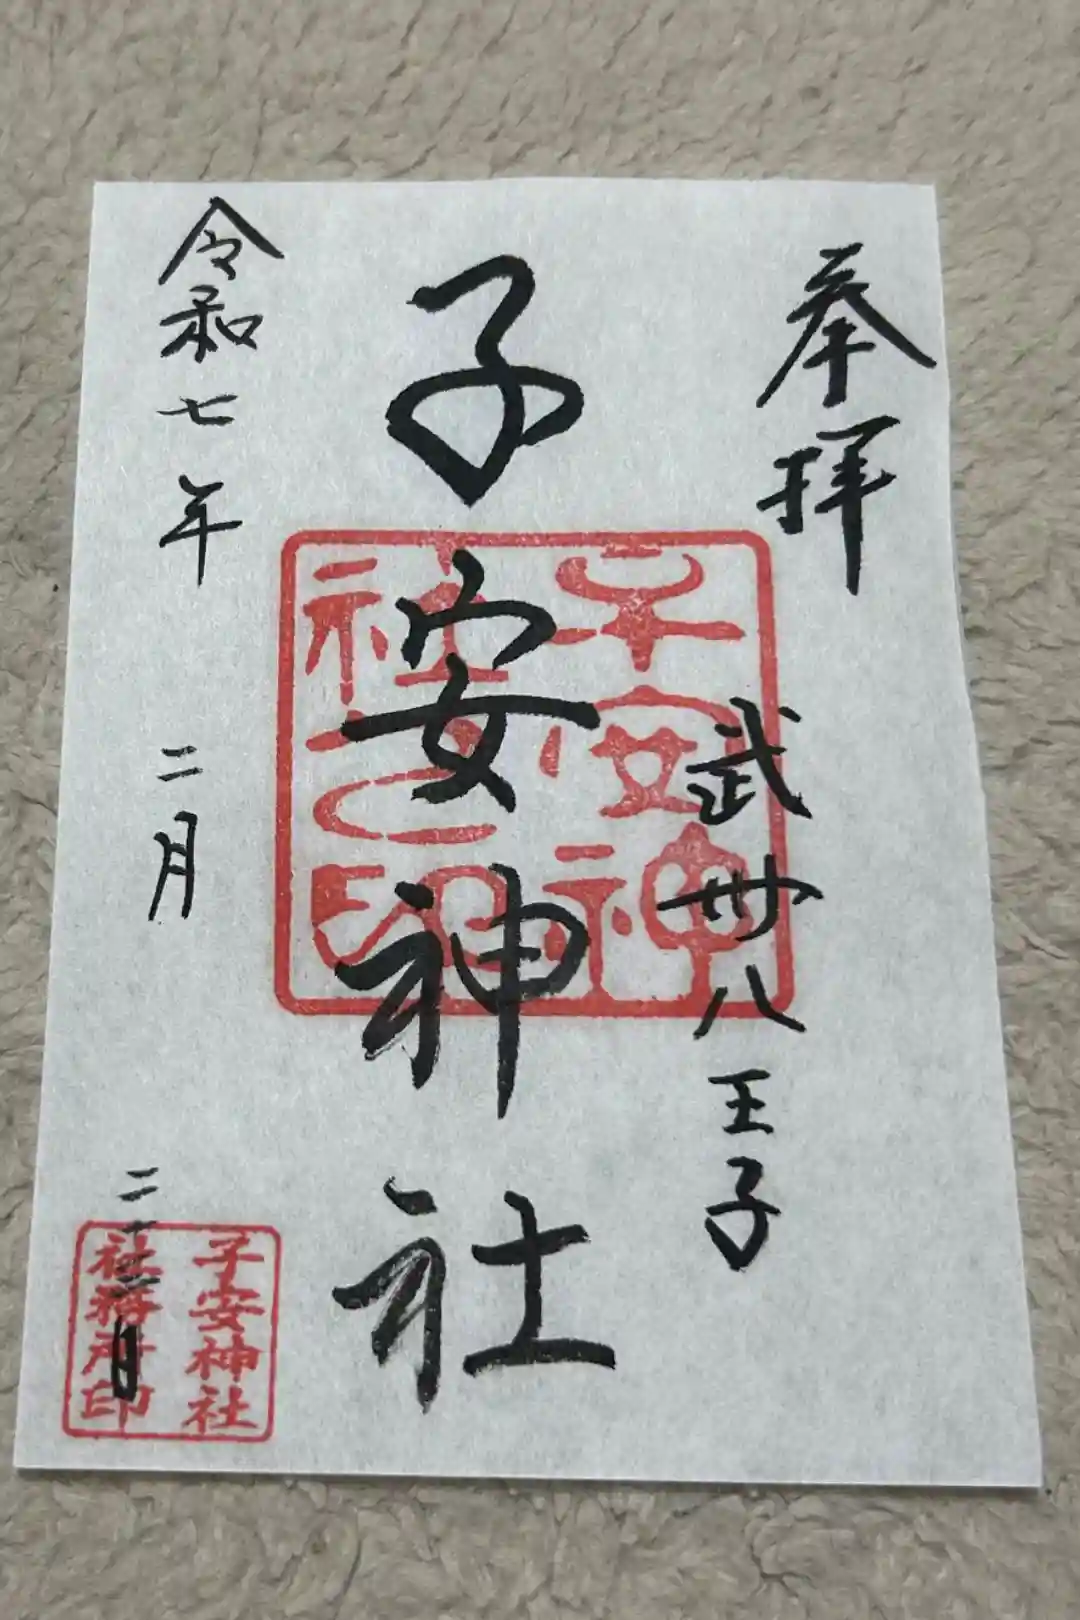 奉拝
武州八王子
子安神社
子安神
社之印
令和七年二月二十二日
子安神社
社務所印